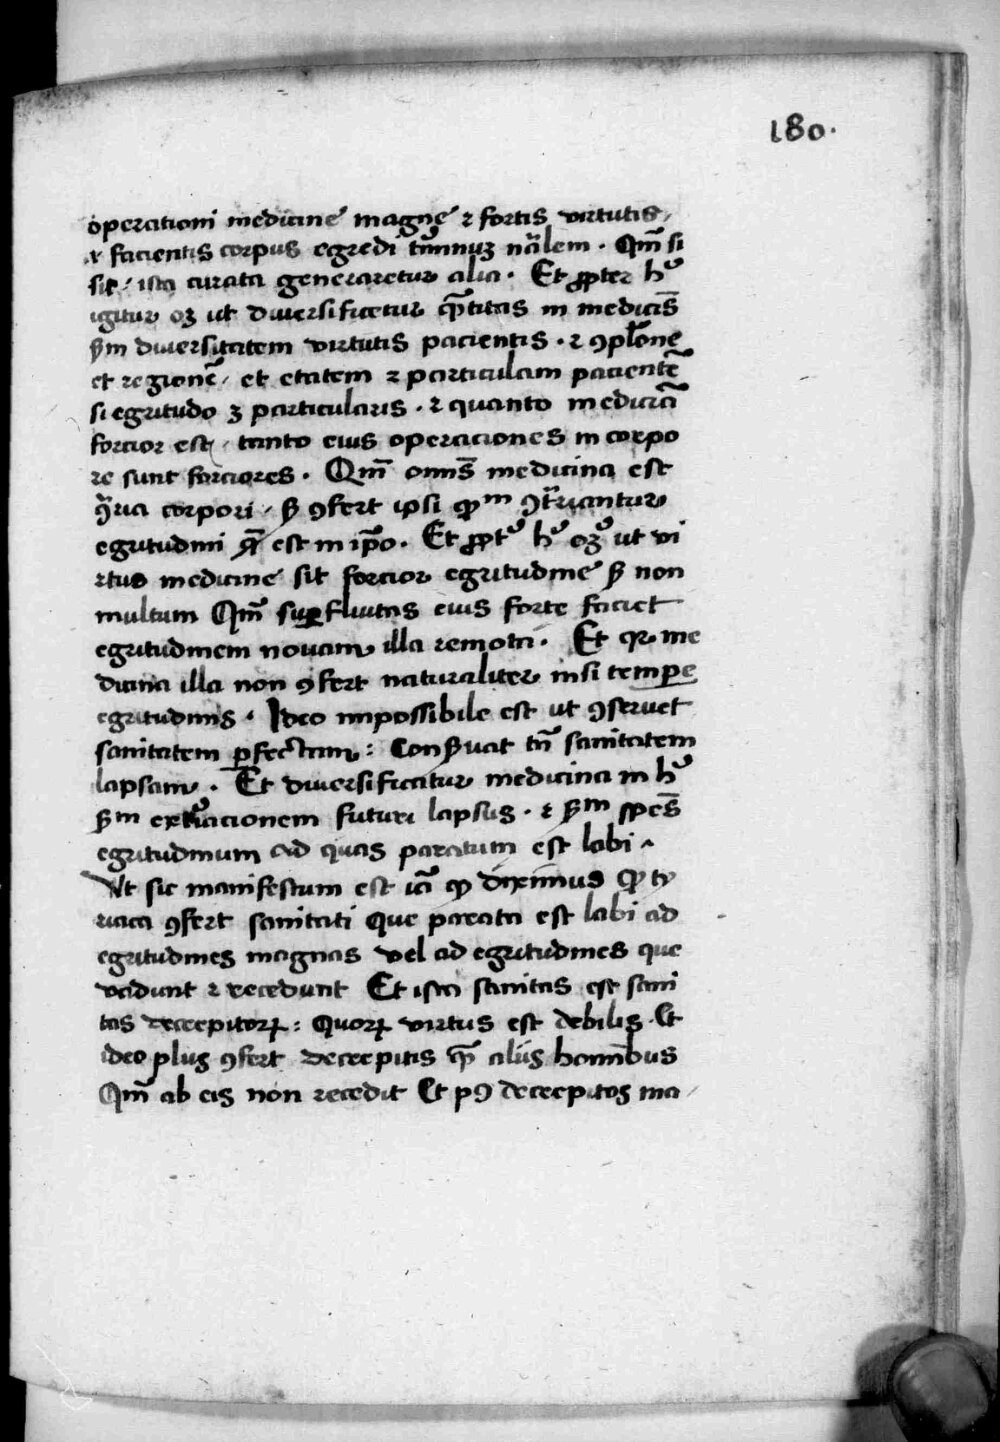 180.
operationi medicine magne ⁊ fortis virtutis,
⁊ facientis corpus egredi t͛minuꝫ nãlem . Qm̃ si
sit / ista curata generaretur alia . Et ꝓpter hͦ
igitur oꝫ ut diversificetur qͣ̃titas in medicis̃
ẜm diversitatem virtutis pacientis . ⁊ ꝯplõne
et regionẽ / et etatem ⁊ particulam pacientẽ
si egritudo ꝫ particularis . ⁊ quanto medicĩa
forcior est / tanto eius operaciones in corpo
re sunt forciores . Qm̃ omnis̃ medicina est
ꝯ̃ria corpori / ẜ ꝯfert ipsi ꝓm ꝯtͬriantur
egritudini q̃ est in ip̃o . Et ꝓptͦ hͦ oꝫ ut vi
rtus medicine sit forcior egritudine ẜ non
multum Qm̃ suꝑfluitas eius forte faciet
egritudinem novam illa remota . Et qꝛ me
dicina illa non ꝯfert naturaliter nisi tempe
egritudinis . Ideo impossibile est ut ꝯservet
sanitatem ꝑfectam : Conẜvat tñ sanitatem
lapsam . Et diversificatur medicina in hͦ
ẜm extimacionem futuri lapsus . ⁊ ẜm spẽs
egritudinum ad quas paratum est labi .
Ut sic manifestum est iã ꝙ diximus ꝙ ty
riaca ꝯfert sanitati que parata est labi ad
egritudines magnas vel ad egritudines que
vadunt ⁊ recedunt Et ista sanitas est sani
tas decrepitoꝝ : Quoꝝ virtus est debilis . Et
ideo plus ꝯfert decrepitis qͣ̃ aliis hominibus
Qm̃ ab eis non recedit Et pꝰ decrepitos ma